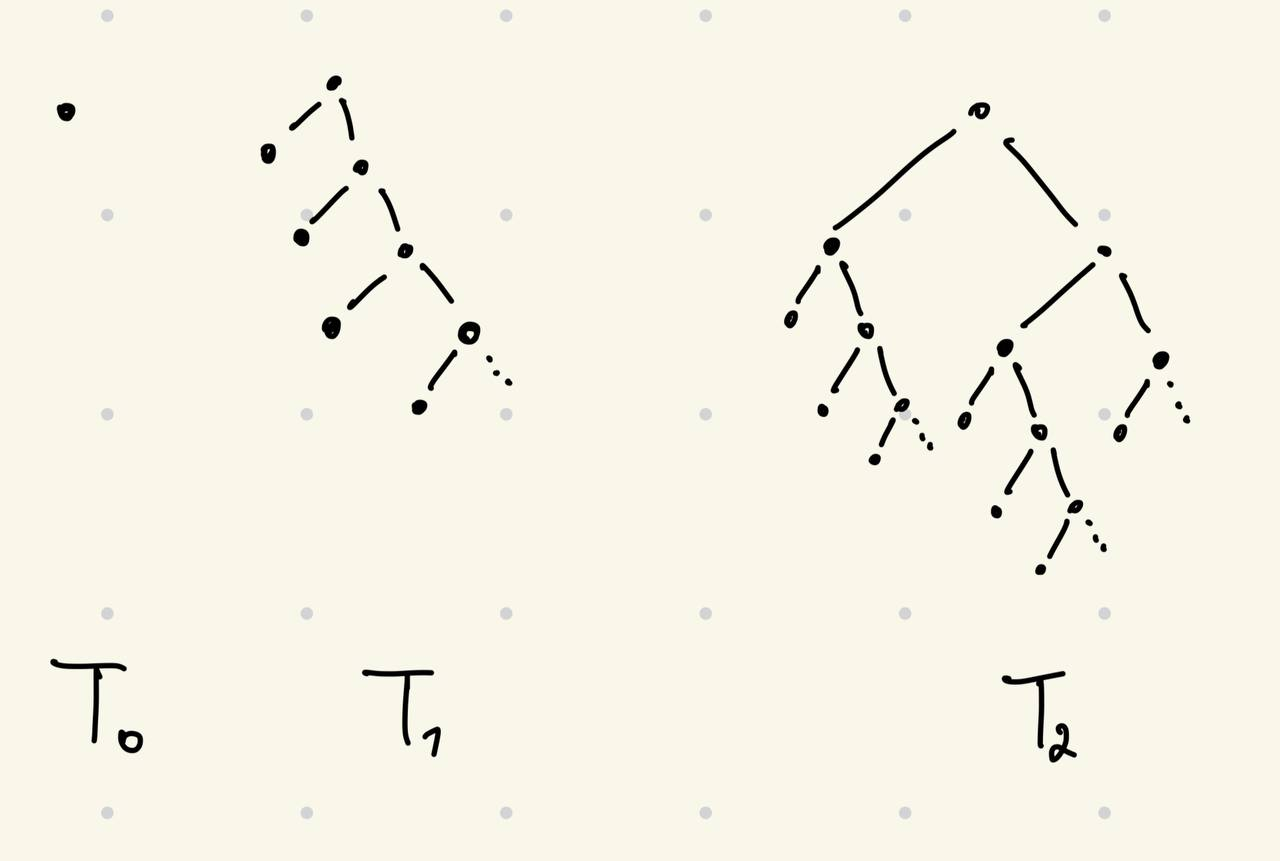 T0 T1 T2